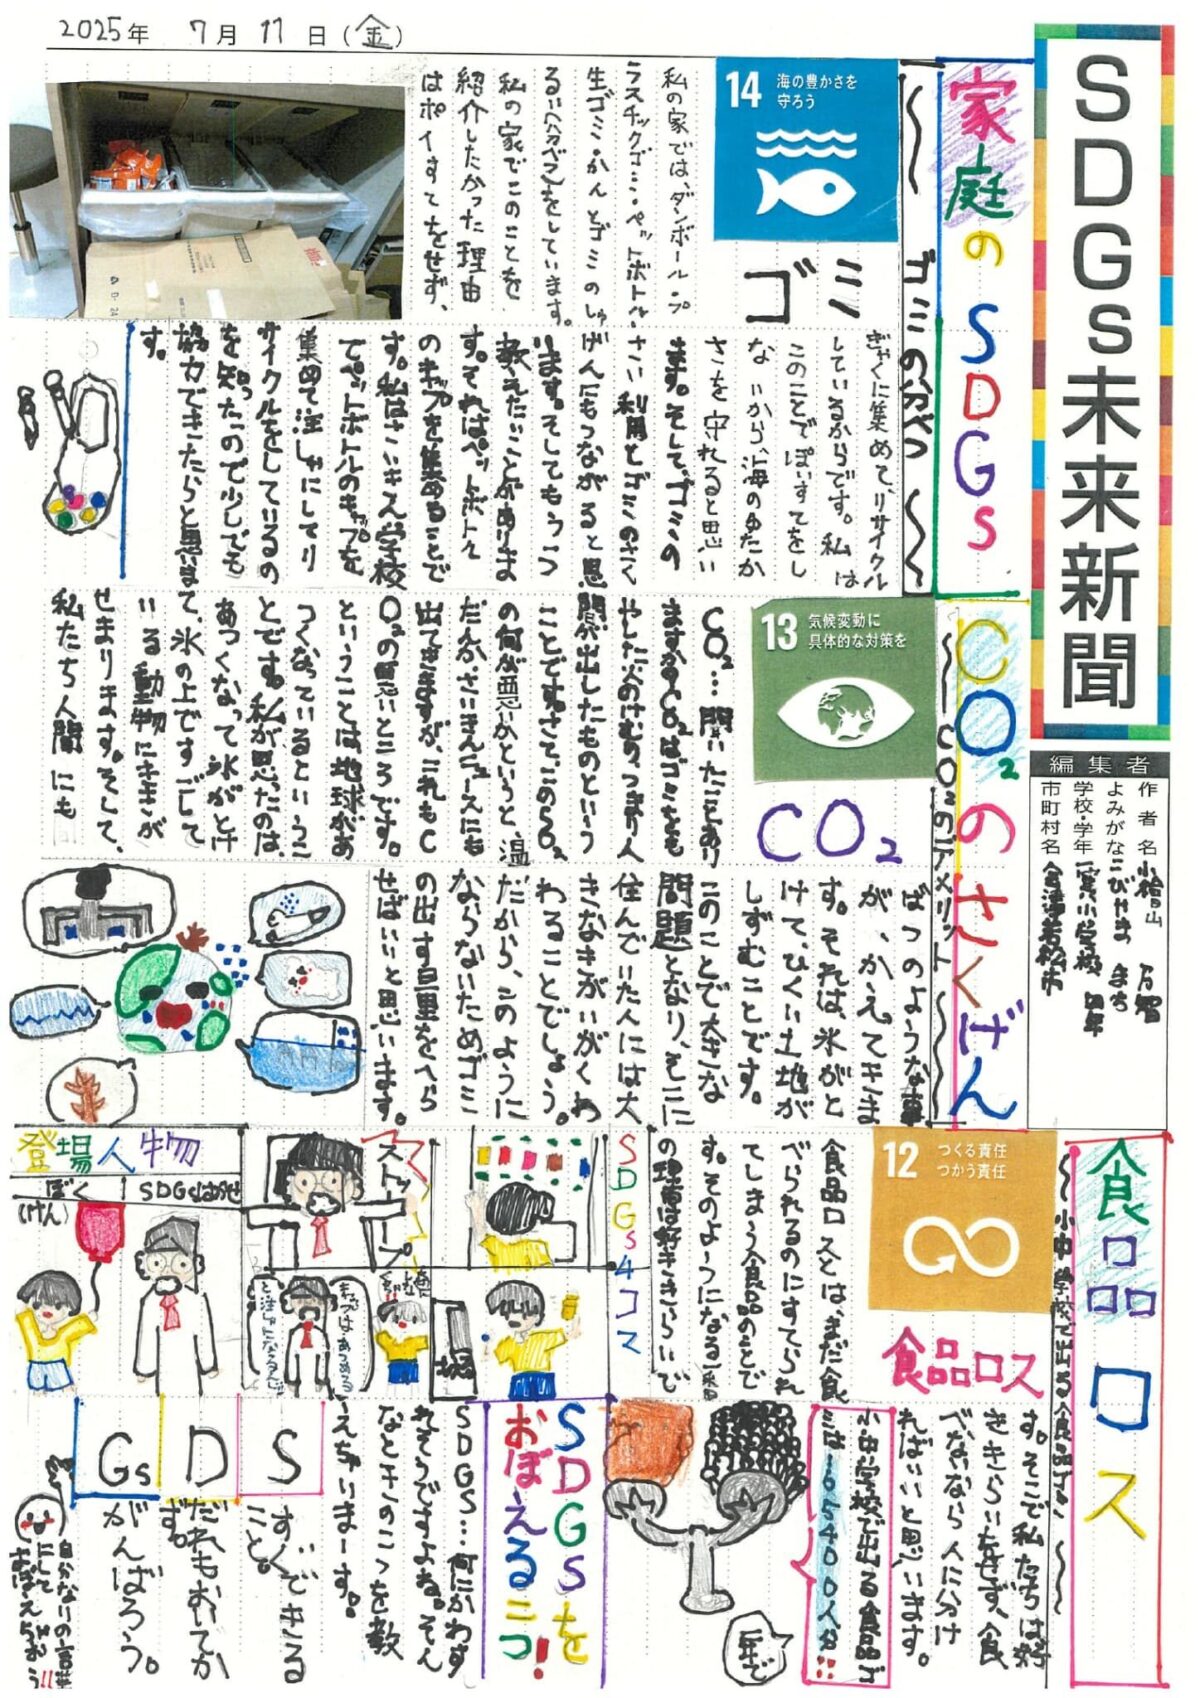 2025年 7月 11日(金)
SDGs未来新聞
編集者
作者名 小檜山 万智
よみがな こひやま まち
学校・学年 一箕小学校 四年
市町村名 会津若松市
家庭のSDGs
〜 ゴミの分べつ 〜
14 海の豊かさを
守ろう
ゴミ
私の家では、ダンボール・プ
ラスチックゴミ・ペットボトル・
生ゴミ・かんとゴミのしゅ
るい分べつをしています。
私の家でこのことを
紹介したかった理由
はポイすてをせず、
ぎゃくに集めて、リサイクル
しているからです。私は
このことでぽいすてをし
ないから、海のゆたか
さを守れると思い
ます。そして、ゴミの
さい利用とゴミのさく
げんにもつながると思
います。そしてもう一つ
教えたいことがありま
す。それはペットボトル
のキャプを集めることで
す。私はさいきん学校
でペットボトルのキャプを
集めて注しゃにしてリ
サイクルをしているの
を知ったので少しでも
協力できたらと思いま
す。
CO₂のさくげん
〜 CO₂のデメリット 〜
13 気候変動に
具体的な対策を
CO₂
CO₂…聞いたことあり
ますか?CO₂はゴミをも
やした次のけむり、つまり人
間が出したものという
ことです。さて、このCO₂
の何が悪いかというと、温
だんか、さいきんニュースにも
出てきますが、これもC
O₂の悪いところです。
ということは地球があ
つくなっているというこ
とです。私が思ったのは、
あつくなって氷がとけ
て、氷の上ですごして
いる動物にききが
せまります。そして、
私たち人間にも
ばつのような事
が、かえってきま
す。それは、氷がと
けて、ひくい土地が
しずむことです。
このことで大きな
問題となり、そこに
住んでいた人には大
きなきがいがくわ
わることでしょう。
だから、このように
ならないためゴミ
の出す量をへら
せばいいと思います。
食品ロス
〜 小中学校で出る食品ゴミ 〜
12 つくる責任
つかう責任
食品ロス
食品ロスとは、まだ食
べられるのにすてられ
てしまう食品のことで
す。そのようになる一番
の理由は好ききらいで
す。そこで私たちは好
ききらいをせず、食
べないなら人に分け
ればいいと思います。
小中学校で出る食品ゴ
ミは、165400人分!!
一年で
SDGs4コマ
ストープ
キャプはあつめる
と注しゃになるんじゃ
登場人物
ぼく
(けん)
SDGsはかせ
SDGsを
おぼえるこつ!
SDGS…何にかわす
れそうですよね。そん
なときのこつを教
えちゃいまーす。
S
すぐできる
こと。
D
だれもおてか
ず。
Gs
がんばろう。
自分なりの言葉
にして
おぼえちゃお
う!!